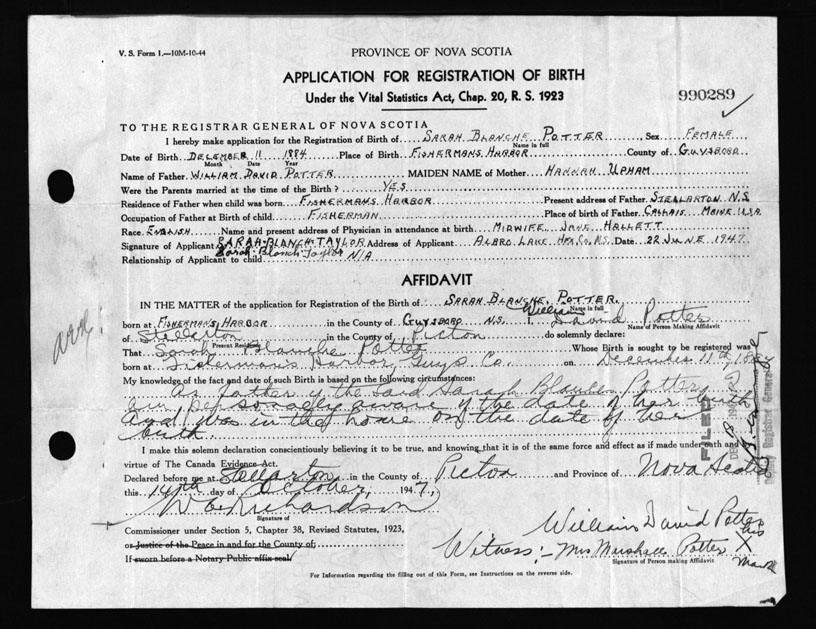 V. S. Form 1.—10M-10-44
PROVINCE OF NOVA SCOTIA
APPLICATION FOR REGISTRATION OF BIRTH
Under the Vital Statistics Act, Chap. 20, R. S. 1923
990289
TO THE REGISTRAR GENERAL OF NOVA SCOTIA
I hereby make application for the Registration of Birth of SARAH BLANCHE POTTER Sex FEMALE
Name in full
Date of Birth DECEMBER 11 1884 Place of Birth FISHERMANS HARBOR County of GUYSBORO
Month Date Year
Name of Father WILLIAM DAVID POTTER MAIDEN NAME of Mother HANNAH UPHAM
Were the Parents married at the time of the Birth? YES
Residence of Father when child was born FISHERMANS HARBOR Present address of Father STELLARTON N.S.
Occupation of Father at Birth of child FISHERMAN Place of birth of Father CALLAIS MAINE USA
Race ENGLISH Name and present address of Physician in attendance at birth MIDWIFE JANE HALLETT
Signature of Applicant SARAH BLANCH TAYLOR Address of Applicant ALBRO LAKE HFX. CO. N.S. Date 22 JUNE 1947
Sarah Blanch Taylor
Relationship of Applicant to child N/A
AFFIDAVIT
IN THE MATTER of the application for Registration of the Birth of SARAH BLANCHE POTTER
Name in full
born at FISHERMANS HARBOR in the County of GUYSBORO N.S. I, William David Potter
Name of Person Making Affidavit
of Stellarton in the County of Picton do solemnly declare:
Present Residence
That Sarah Blanche Potter Whose Birth is sought to be registered was
born at Fisherman's Harbor, Guys Co. on December 11th,
My knowledge of the fact and date of such Birth is based on the following circumstances:
As father of the said Sarah Blanche Potter, I
am personally aware of the date of her birth
and was in the home on the date of her
birth.
I make this solemn declaration conscientiously believing it to be true, and knowing that it is of the same force and effect as if made under oath and by
virtue of The Canada Evidence Act.
Declared before me at Stellarton in the County of Picton and Province of Nova Scotia
this 14th day of October, 1947.
Richardson
Signature of
Commissioner under Section 5, Chapter 38, Revised Statutes, 1923,
or Justice of the Peace in and for the County of
If sworn before a Notary Public affix seal
William David Potter
his X mark
Witness:- Mrs Marshall Potter
Signature of Person making Affidavit
For Information regarding the filling out of this Form, see Instructions on the reverse side.
FILED
Deputy Registrar General